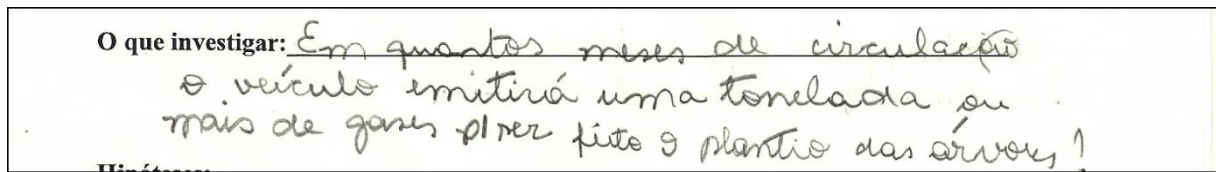 O que investigar: Em quantos meses de circulação
o veículo emitirá uma tonelada ou
mais de gases p/ ser feito o plantio das árvores?
Hipóteses: